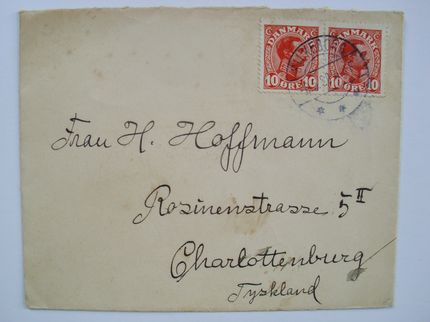 DANMARK DANMARK
10 ØRE 10 10 ØRE 10
Frau H. Hoffmann
Rosinenstrasse 5 II
Charlottenburg
Tyskland